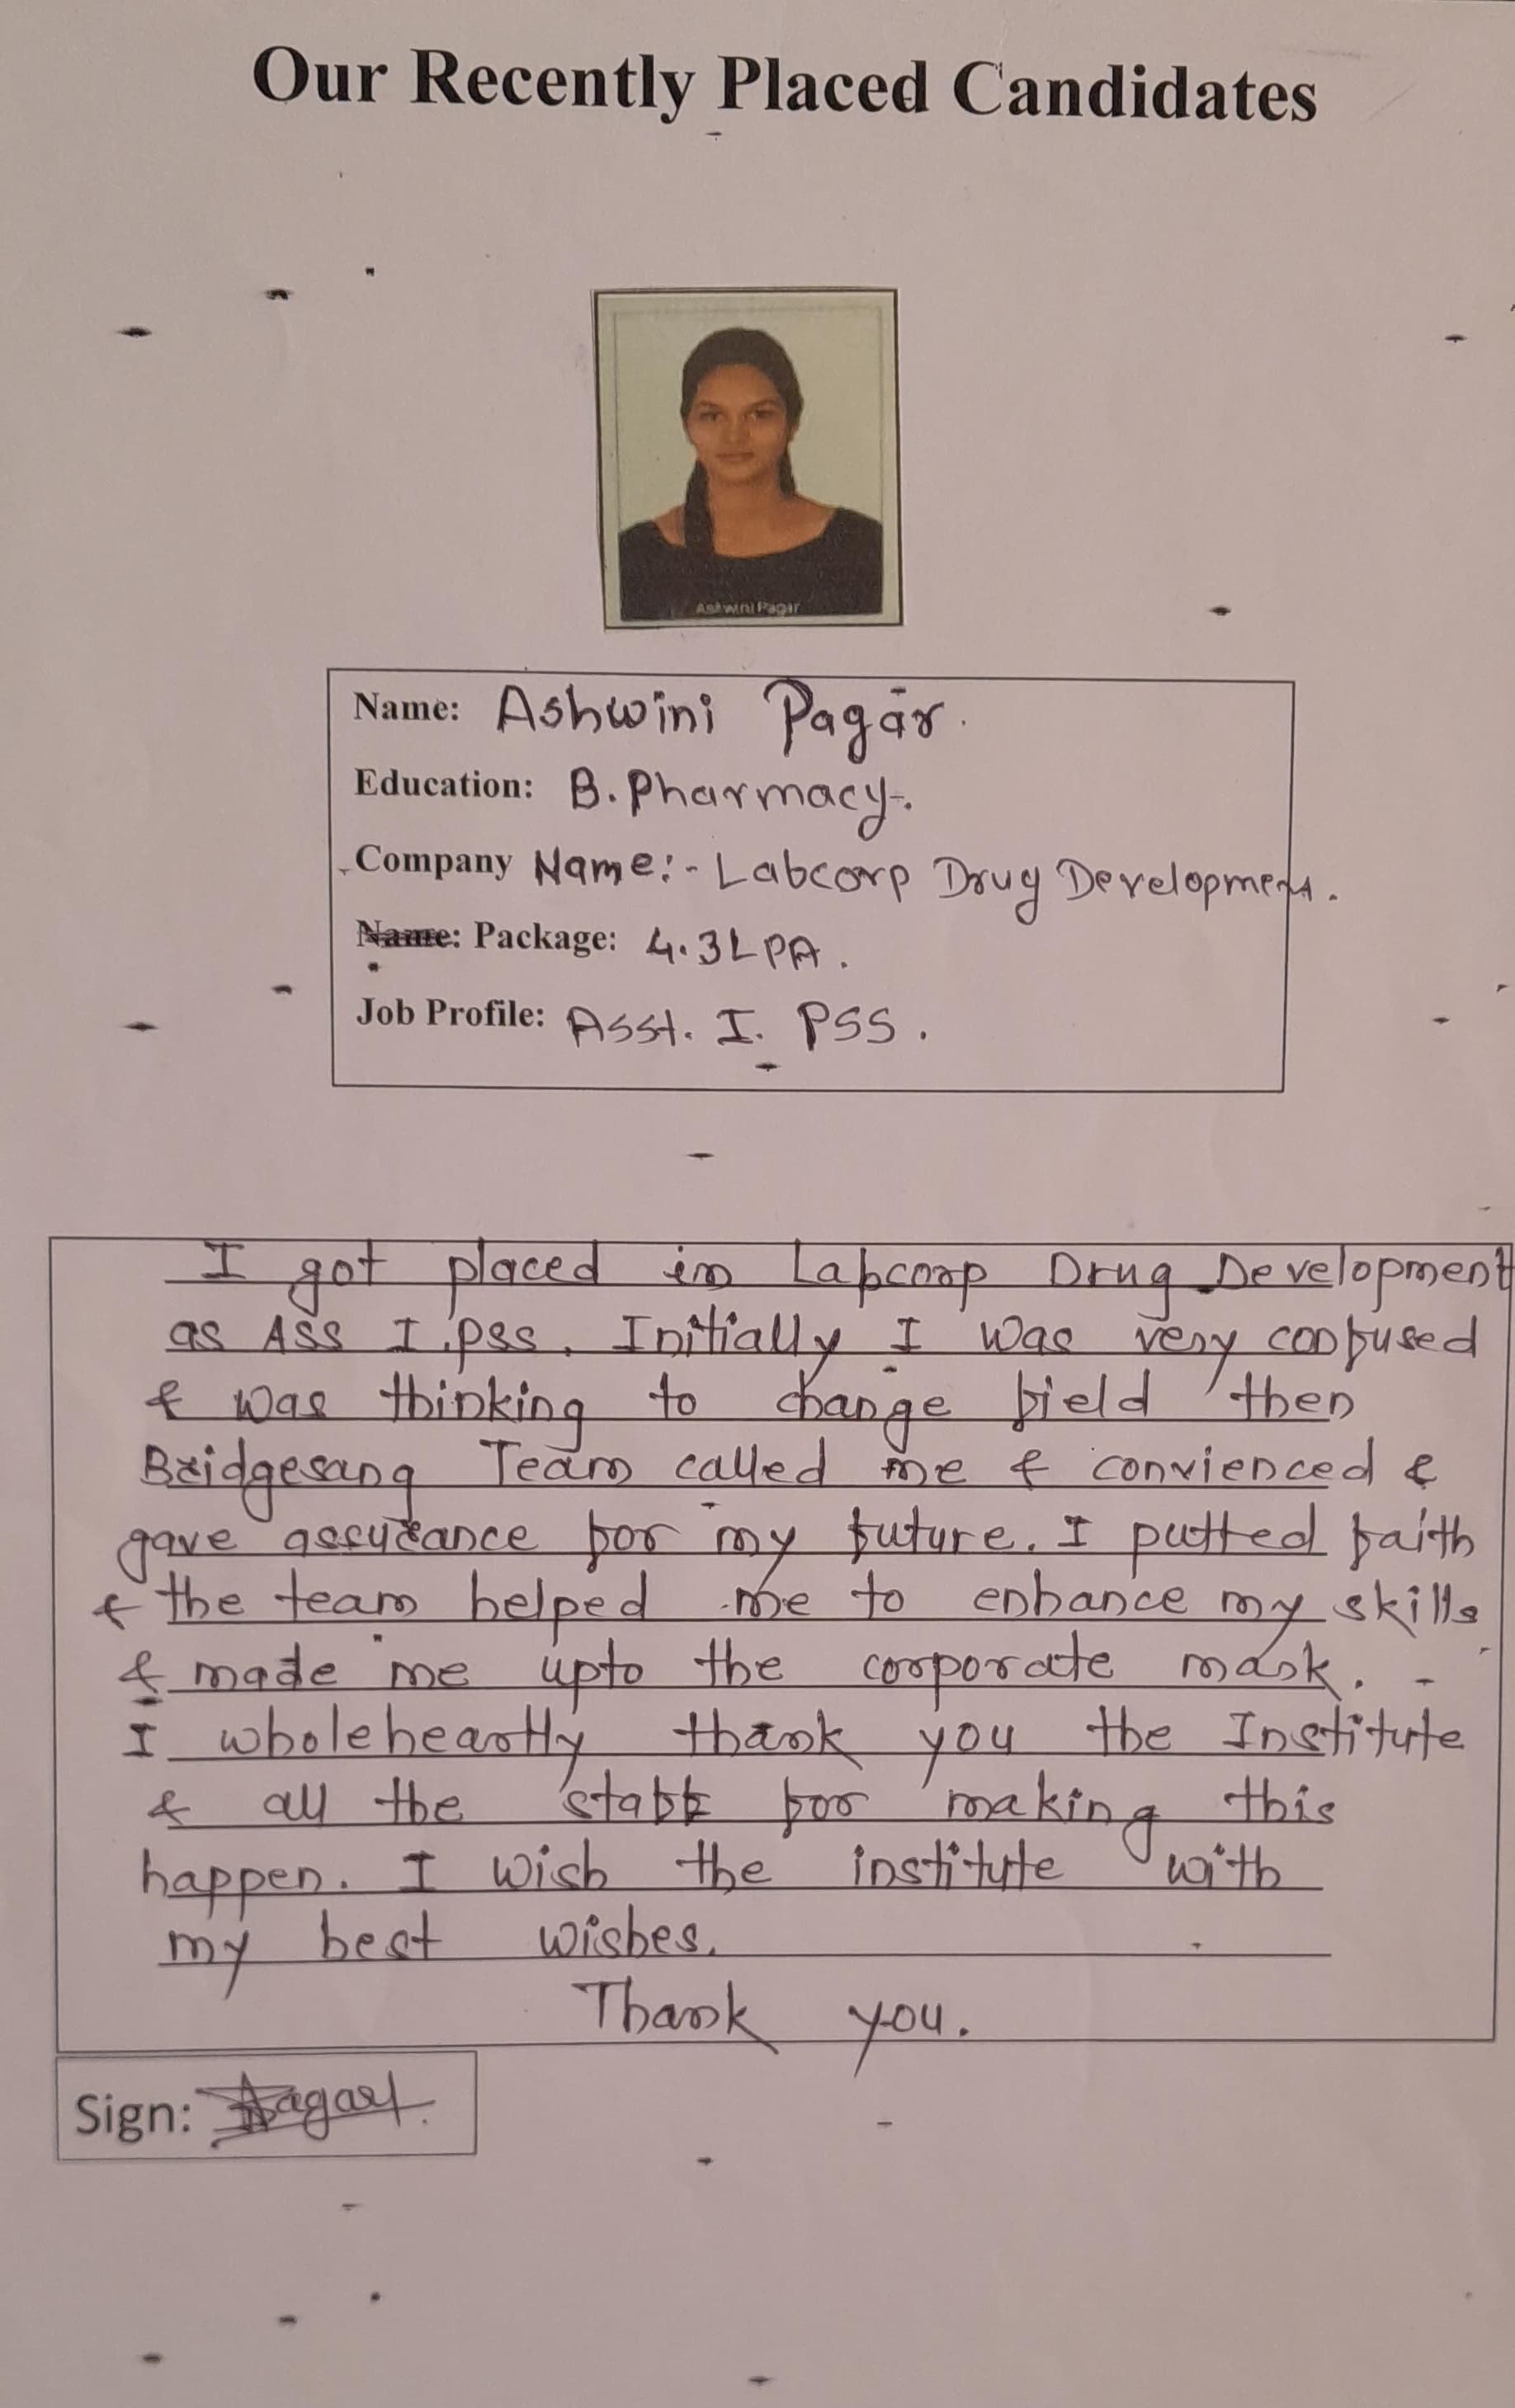 Our Recently Placed Candidates
Ashwini Pagar
Name: Ashwini Pagar.
Education: B. Pharmacy.
Company Name:- Labcorp Drug Development.
Name: Package: 4.3LPA.
Job Profile: Asst. I. PSS.
I got placed in Labcorp Drug Development
as Ass I. pss. Initially I was very confused
& was thinking to change field then
Bridgesang Team called me & convienced &
gave assurance for my future. I putted faith
& the team helped me to enhance my skills
& made me upto the corporate mark.
I wholeheartly thank you the Institute
& all the staff for making this
happen. I wish the institute with
my best wishes.
Thank you.
Sign: Pagar